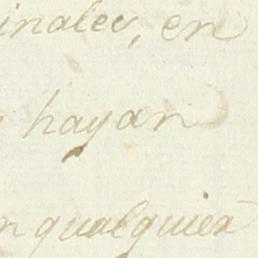 inales, en
hayan
n qualquiera